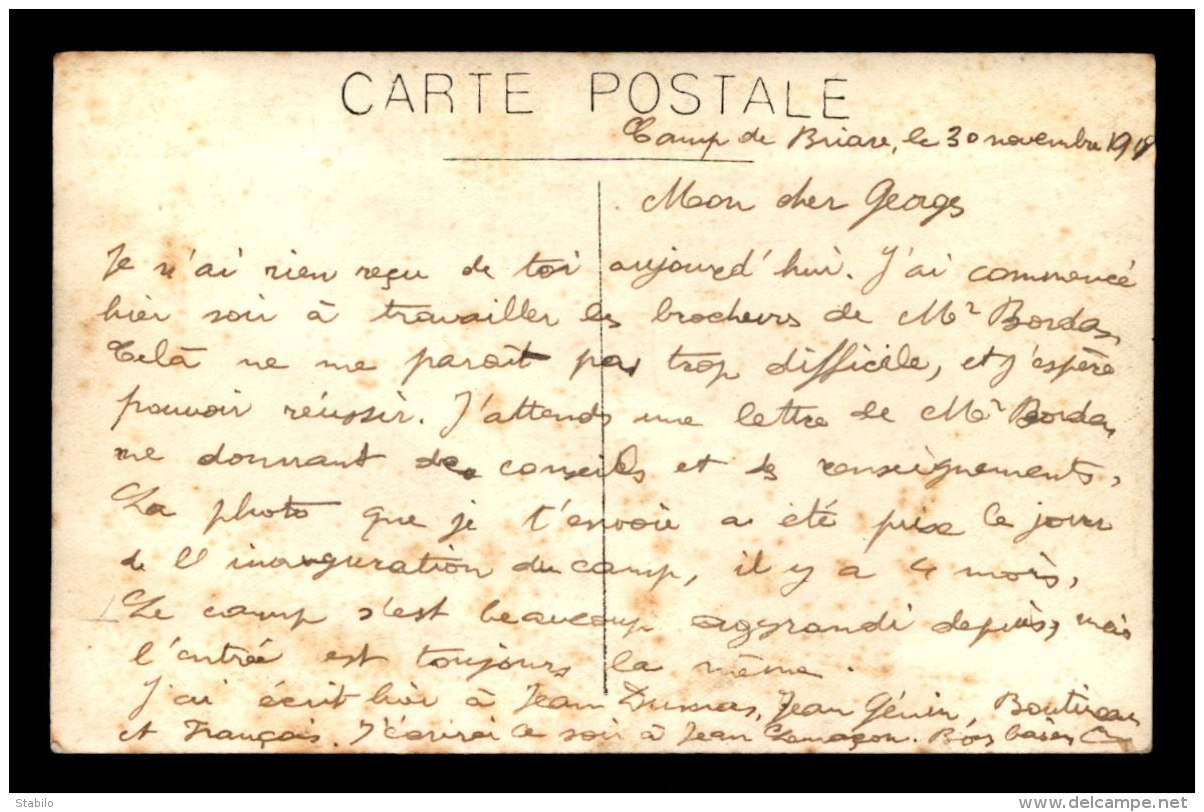 CARTE POSTALE
Camp de Briare, le 30 novembre
Mon cher Georges
Je n'ai rien reçu de toi aujourd'hui. J'ai commencé
hier soir à travailler les brochures de Mr Bordas,
Celà ne me paraît pas trop difficile, et j'espère
pouvoir réussir. J'attends une lettre de Mr Bordas
me donnant des conseils et des renseignements,
La photo que je t'envoie a été prise le jour
de l'inauguration du camp, il y a 4 mois,
Le camp s'est beaucoup aggrandi depuis, mais
l'entrée est toujours la même.
J'ai écrit hier à Jean Dumas, Jean Génin,
et François. J'écrirai ce soir à Jean Bons baisers
Stabilo
delcampe.net